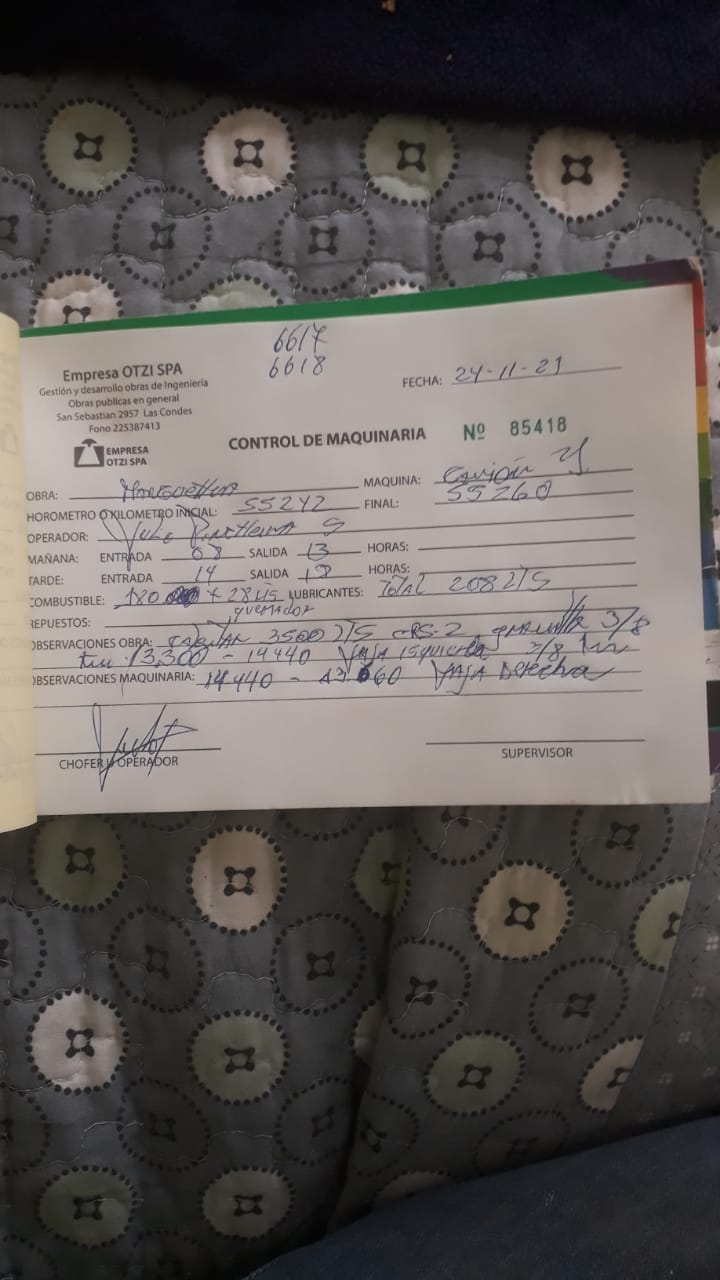 6617
6618
Empresa OTZI SPA
Gestión y desarrollo obras de Ingeniería
Obras publicas en general
San Sebastian 2957 Las Condes
Fono 225387413
FECHA: 24-11-21
EMPRESA
OTZI SPA
CONTROL DE MAQUINARIA Nº 85418
OBRA: MAQUINA:
HOROMETRO O KILOMETRO INICIAL: 55242 FINAL: 55260
OPERADOR: Julio S
MAÑANA: ENTRADA 08 SALIDA 13 HORAS:
TARDE: ENTRADA 14 SALIDA 19 HORAS:
COMBUSTIBLE: 180 + 28 LTS LUBRICANTES: TOTAL 208 LTS
quemador
REPUESTOS:
OBSERVACIONES OBRA: 3500 LTS CRS-2 gravilla 3/8
km 13,300 - 14440 FAJA ISquierda 3/8 km
OBSERVACIONES MAQUINARIA: 14440 - 60 FAJA Derecha
CHOFER U OPERADOR
SUPERVISOR